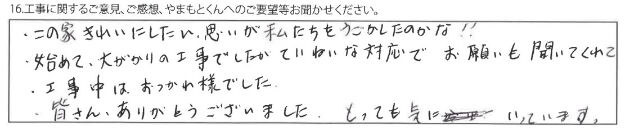 16.工事に関するご意見、ご感想、やまもとくんへのご要望等お聞かせください。
・この家きれいにしたい、思いが私たちをうごかしたのかな!!
・始めて、大がかりの工事でしたがていねいな対応でお願いも聞いてくれて
・工事中はおつかれ様でした。
・皆さん、ありがとうございました。とっても気に いっています。